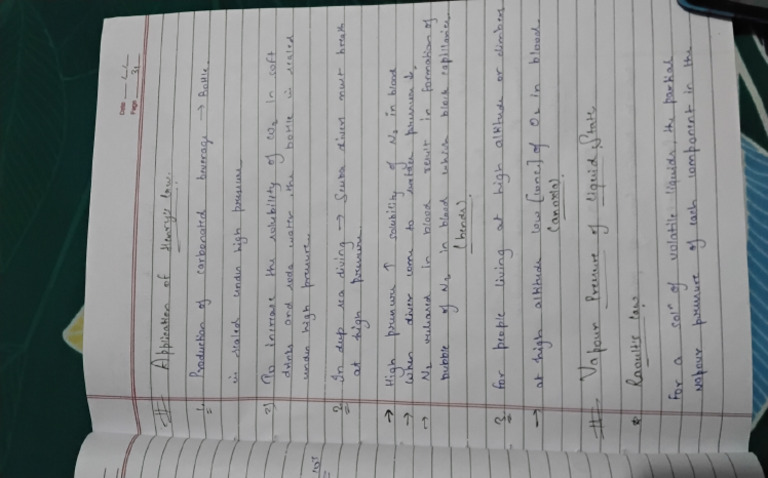 Date
Page 31
# Application of Henry's law.
1. Production of carbonated beverage → Bottle.
is sealed under high pressure
2) To increase the solubility of CO2 in soft
drinks and soda water, the bottle is sealed
under high pressure.
2. In deep sea diving → Scuba divers must breath
at high pressure.
→ High pressure ↑ solubility of N2 in blood
→ When diver come to surface pressure ↓.
→ N2 released in blood result in formation of
bubble of N2 in blood which block capillaries.
(bends)
3. For people living at high altitude or climbers
→ at high altitude low [conc.] of O2 in blood.
(anoxia)
# Vapour Pressure of liquid State
* Raoults law
For a soln of volatile liquids, the partial
vapour pressure of each component in the